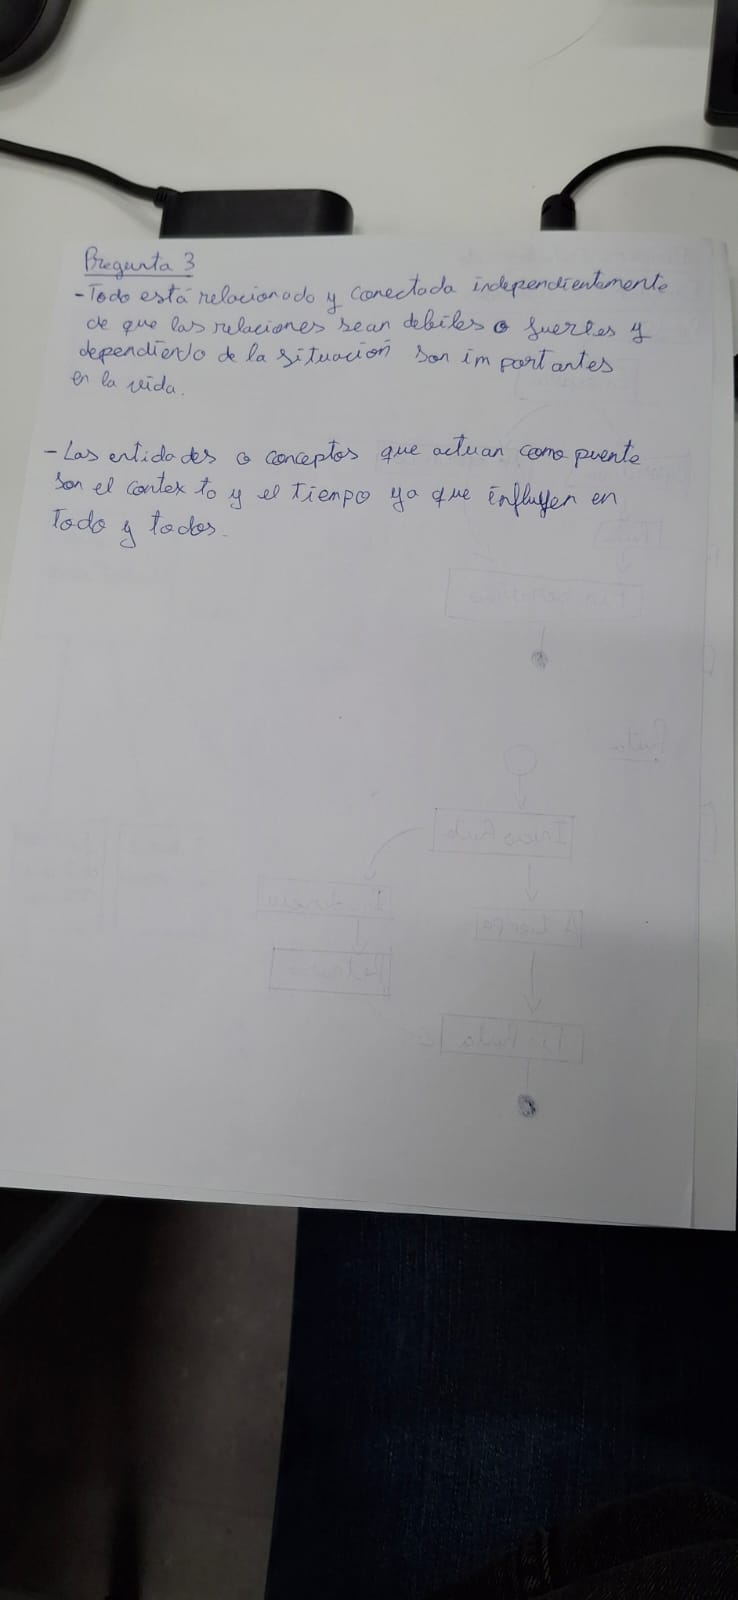 Pregunta 3
- Todo está relacionado y conectada independientemente
de que las relaciones sean debiles o fuertes y
dependiendo de la situación son importantes
en la vida.
- Las entidades o conceptos que actuan como puente
son el contexto y el tiempo ya que influyen en
todo y todos.
Ruta
Inicio Ruta
Fin Ruta